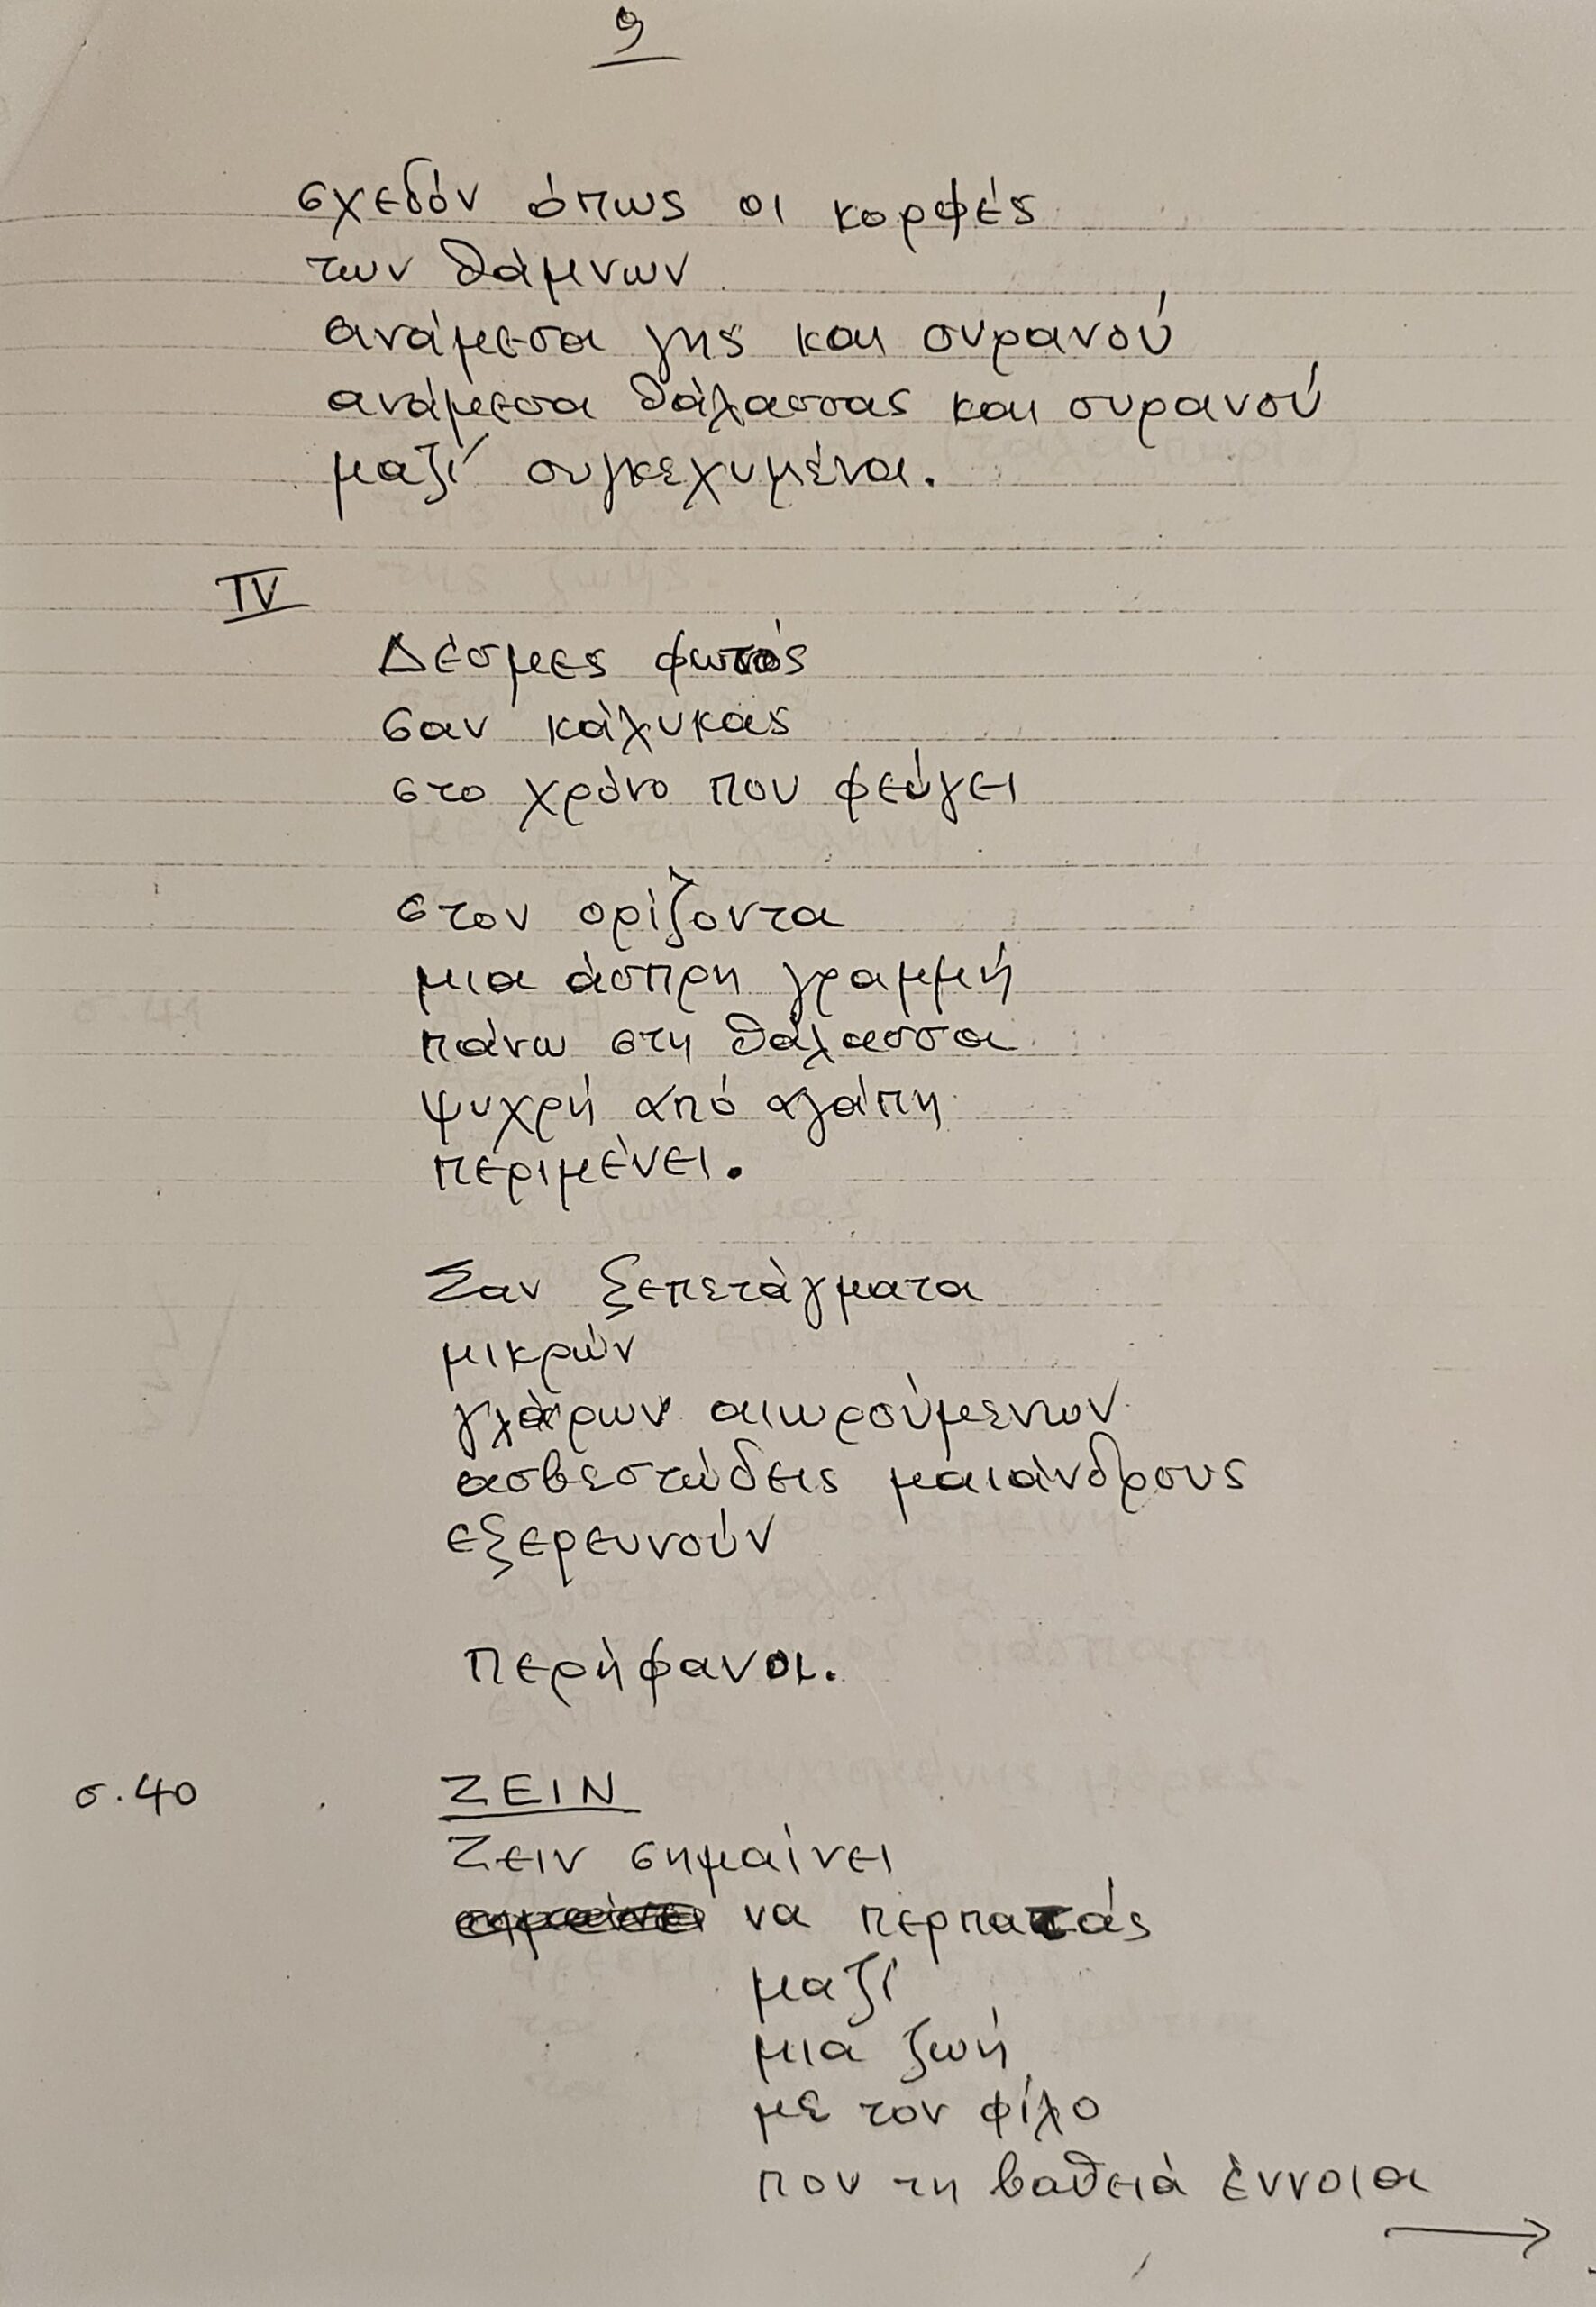 9
σχεδόν όπως οι κορφές
των θάμνων
ανάμεσα γης και ουρανού
ανάμεσα θάλασσας και ουρανού
μαζί συγκεχυμένα.
IV
Δέσμες φωτός
σαν κάλυκας
στο χρόνο που φεύγει
στον ορίζοντα
μια άσπρη γραμμή
πάνω στη θάλασσα
ψυχρή από αγάπη
περιμένει.
Σαν ξεπετάγματα
μικρών
γλάρων αιωρούμενων
ασβεστώδεις μαιάνδρους
εξερευνούν
περήφανοι.
σ. 40 ΖΕΙΝ
Ζειν σημαίνει
να περπατάς
μαζί
μια ζωή
με τον φίλο
που τη βαθειά έννοια
→